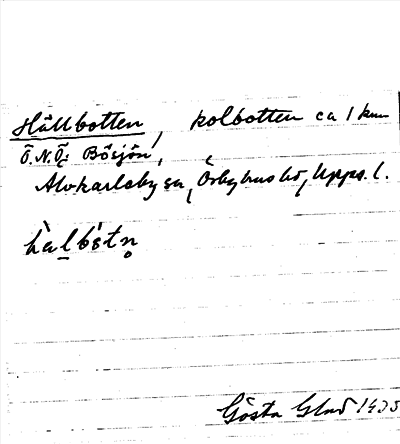 Hällbotten, kolbotten ca 1 km
Ö.N.Ö. Bösjön,
Älvkarleby sn, Örbyhus hd, Upps. l.
hàlbòtn̥
Gösta Glad 1935